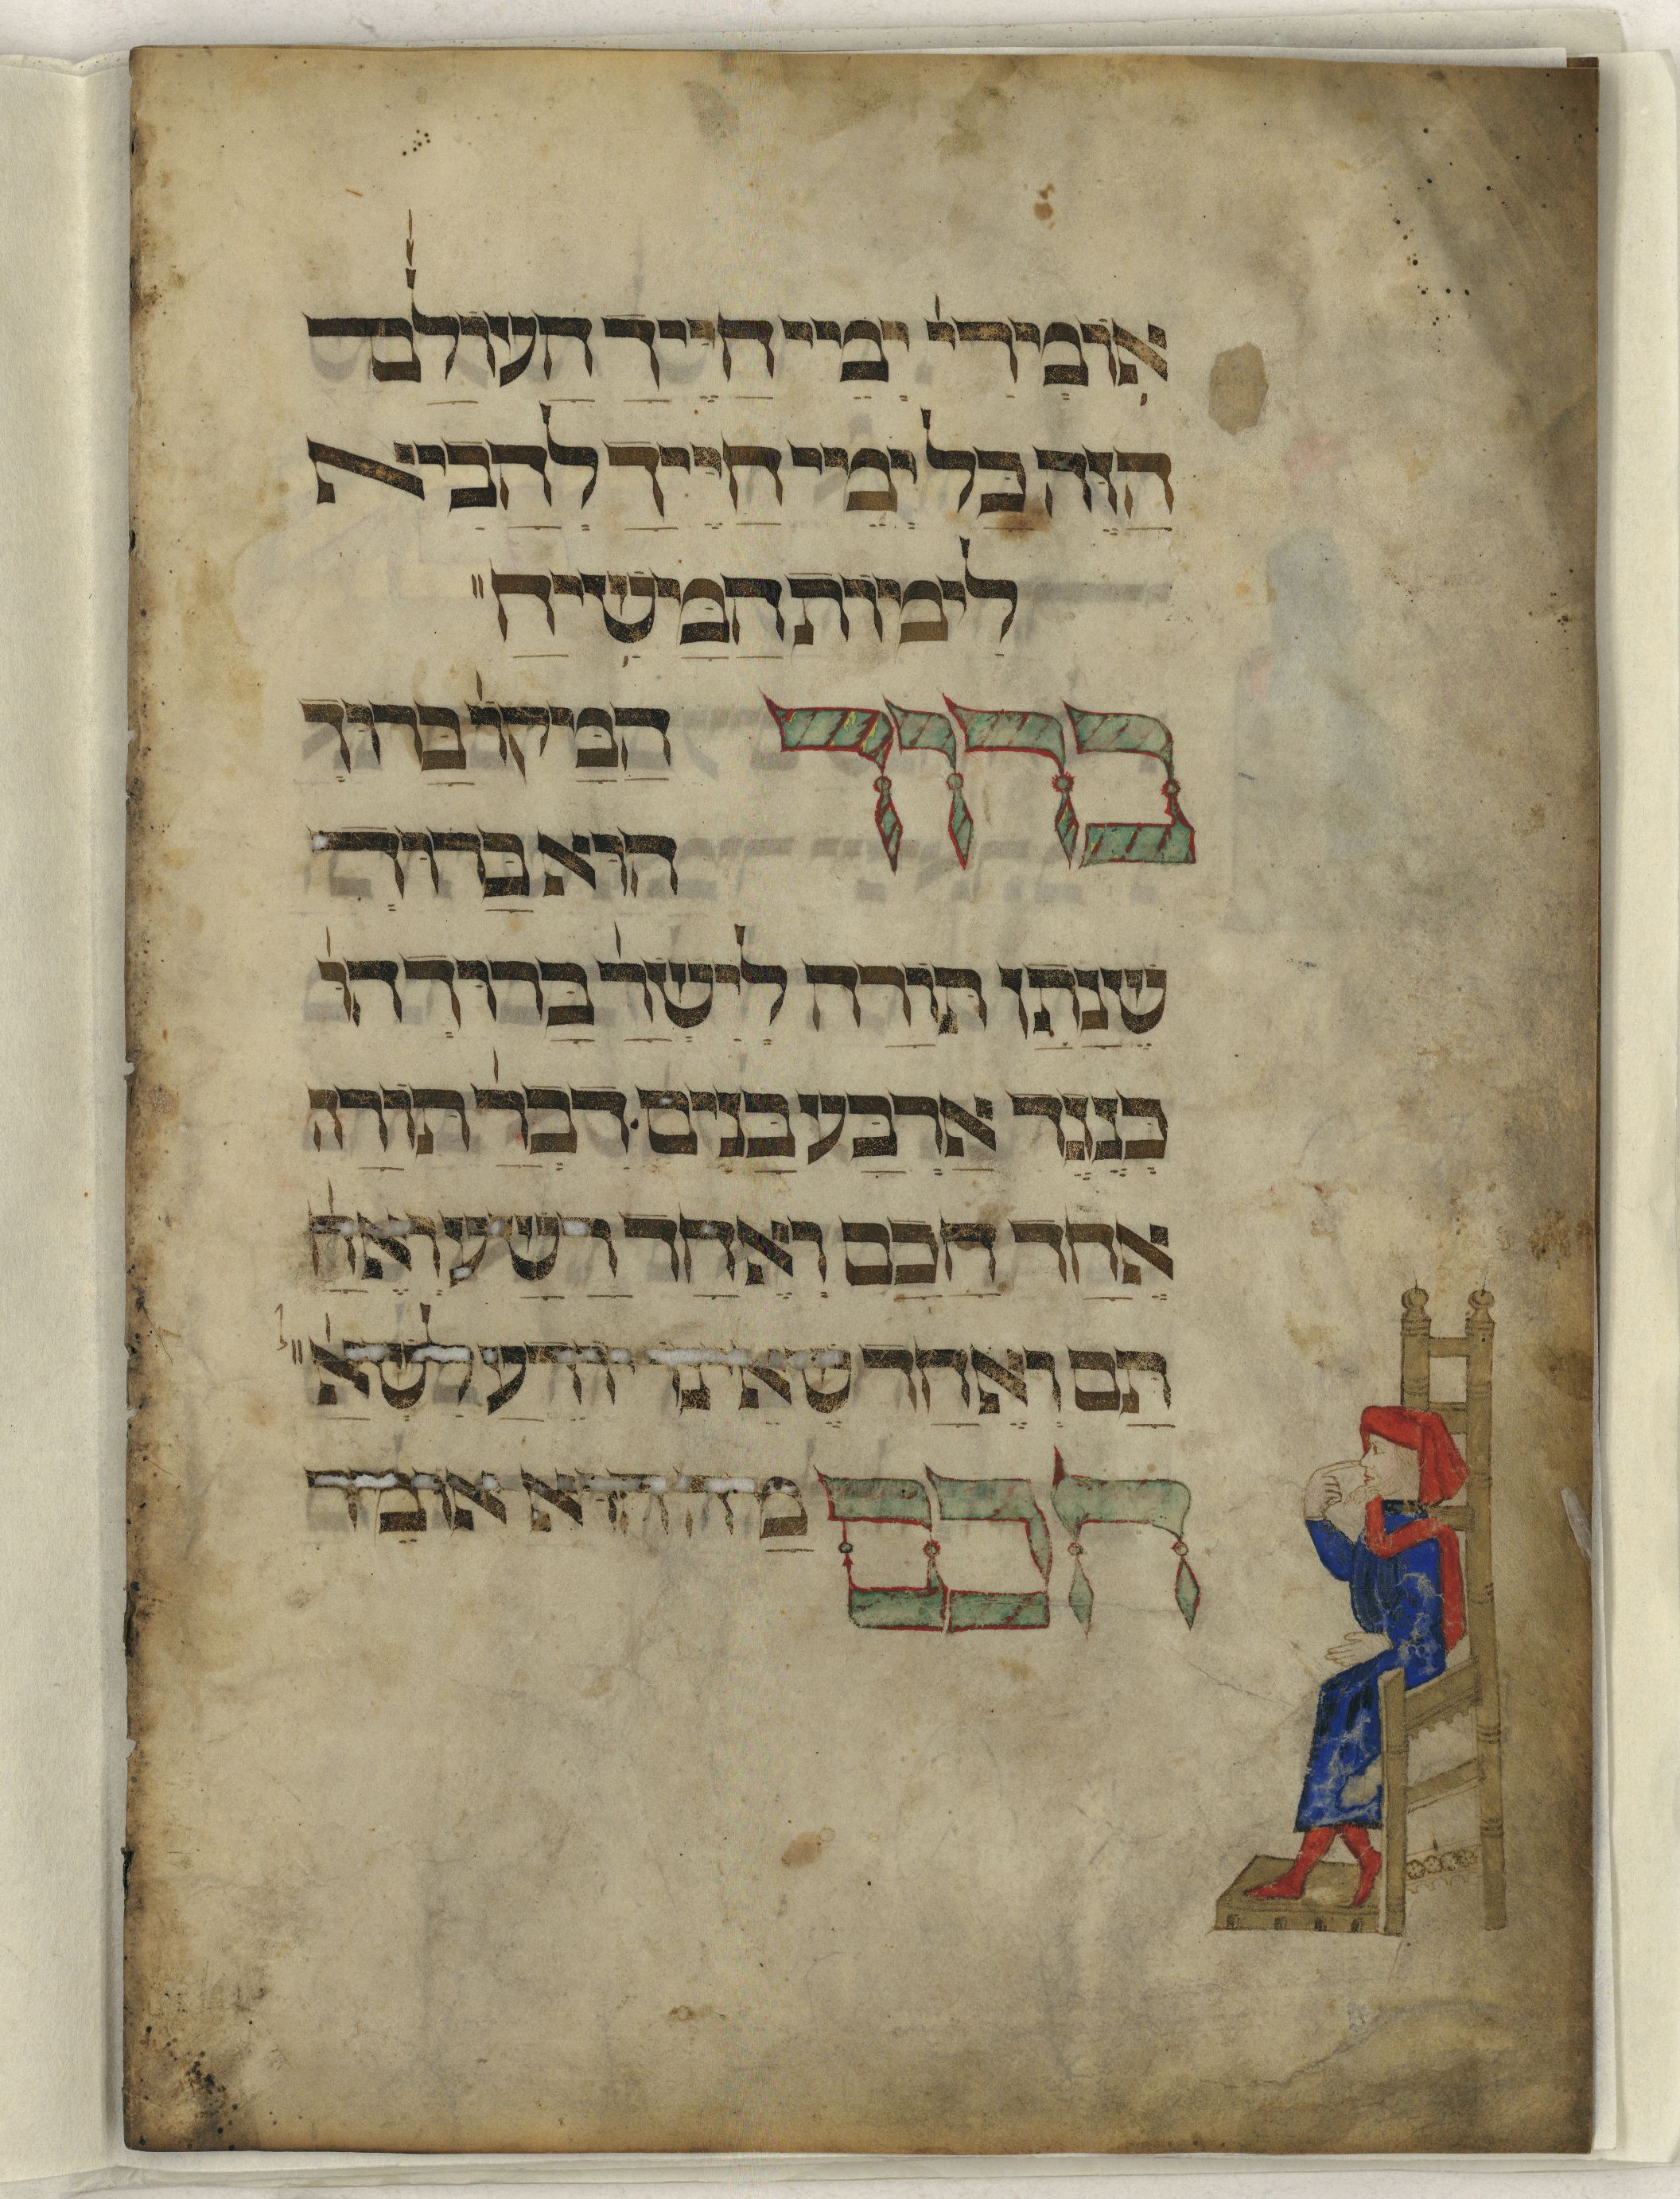 אוֹמְרִי׳ יְמֵיי חַיֶּיךָ הָעוֹלָם
הַזֶּה כֹּל יְמֵיי חַיֶּיךָ לְהָבִיא
לִימוֹת הַמָּשִׁיחַ״
בָּרוּךְ הַמָּקוֹ׳ בָּרוּךְ
הוּא בָּרוּךְ
שֶׁנָּתַן תּוֹרָה לְיִשְׂרָ׳ בָּרוּךְ הוּ׳
כְּנֶגֶד אַרְבַּע בָּנִים. דִּבְּר׳ תּוֹרָה
אֶחָד חָכָם וְאֶחָד רָשָׁע וְאֶח׳
תָּם וְאֶחָד שֶׁאֵינוֹ יוֹדֵעַ לִשְׁא׳״
חָכָם מַה הוּא אוֹמֵר